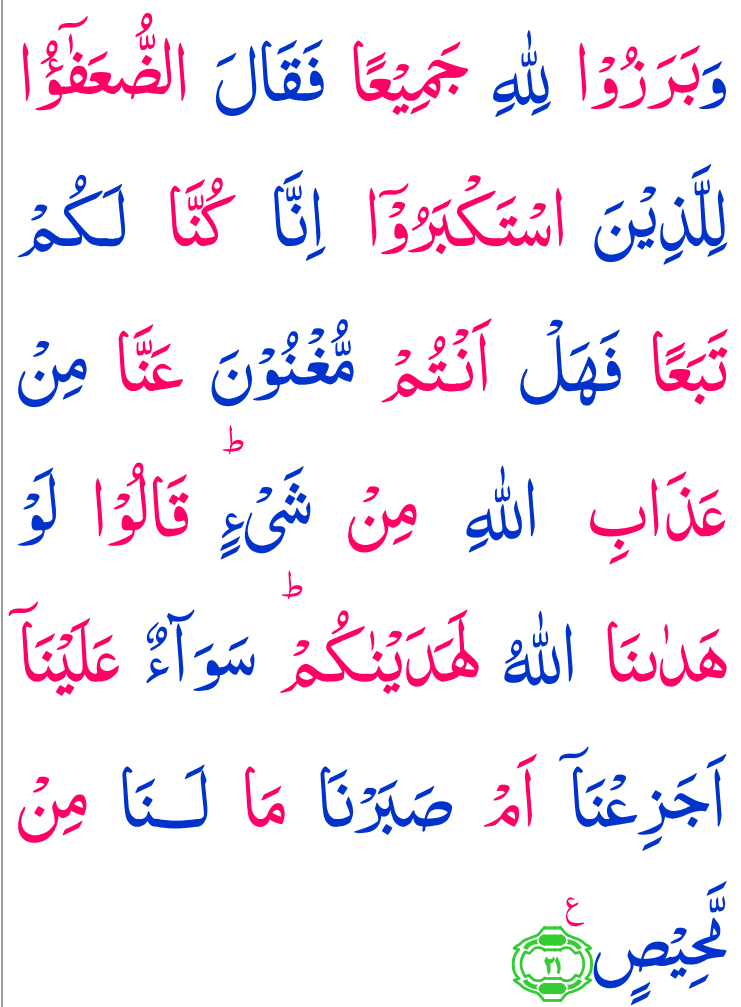 وَبَرَزُوْا لِلّٰهِ جَمِيْعًا فَقَالَ الضُّعَفٰٓؤُا
لِلَّذِيْنَ اسْتَكْبَرُوْٓا اِنَّا كُنَّا لَكُمْ
تَبَعًا فَهَلْ اَنْتُمْ مُّغْنُوْنَ عَنَّا مِنْ
عَذَابِ اللّٰهِ مِنْ شَیْءٍ ؕ قَالُوْا لَوْ
هَدٰىنَا اللّٰهُ لَهَدَيْنٰكُمْ ؕ سَوَآءٌ عَلَيْنَآ
اَجَزِعْنَآ اَمْ صَبَرْنَا مَا لَــنَا مِنْ
مَّحِيْصٍ ع ۲۱